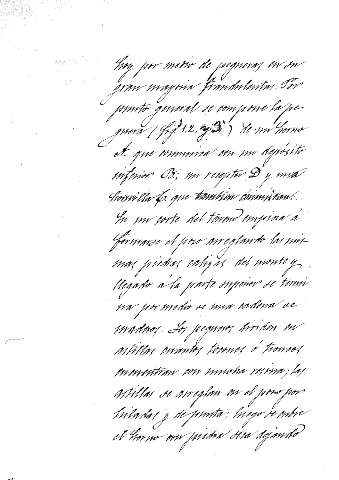 hoy por medio de pegueras en su
gran mayoria fraudulentas. Por
punto general se compone la pe-
guera (fig.ª 1. 2. y 3) de un horno
A. que comunica con un depósito
inferior B; un receptor D y una
hornilla E. que tambien comunican.
En un corte del terreno empieza á
formarse el pozo arreglando las mis-
mas piedras calizas del monte y
llegado á la parte superior se termi-
na por medio de una cadena de
maderos. Los pegueros dividen en
astillas cuantos tocones ó troncos
encuentran con mucha resina; las
astillas se arreglan en el pozo por
tuladas y de punta; luego se cubre
el horno con piedra seca dejando